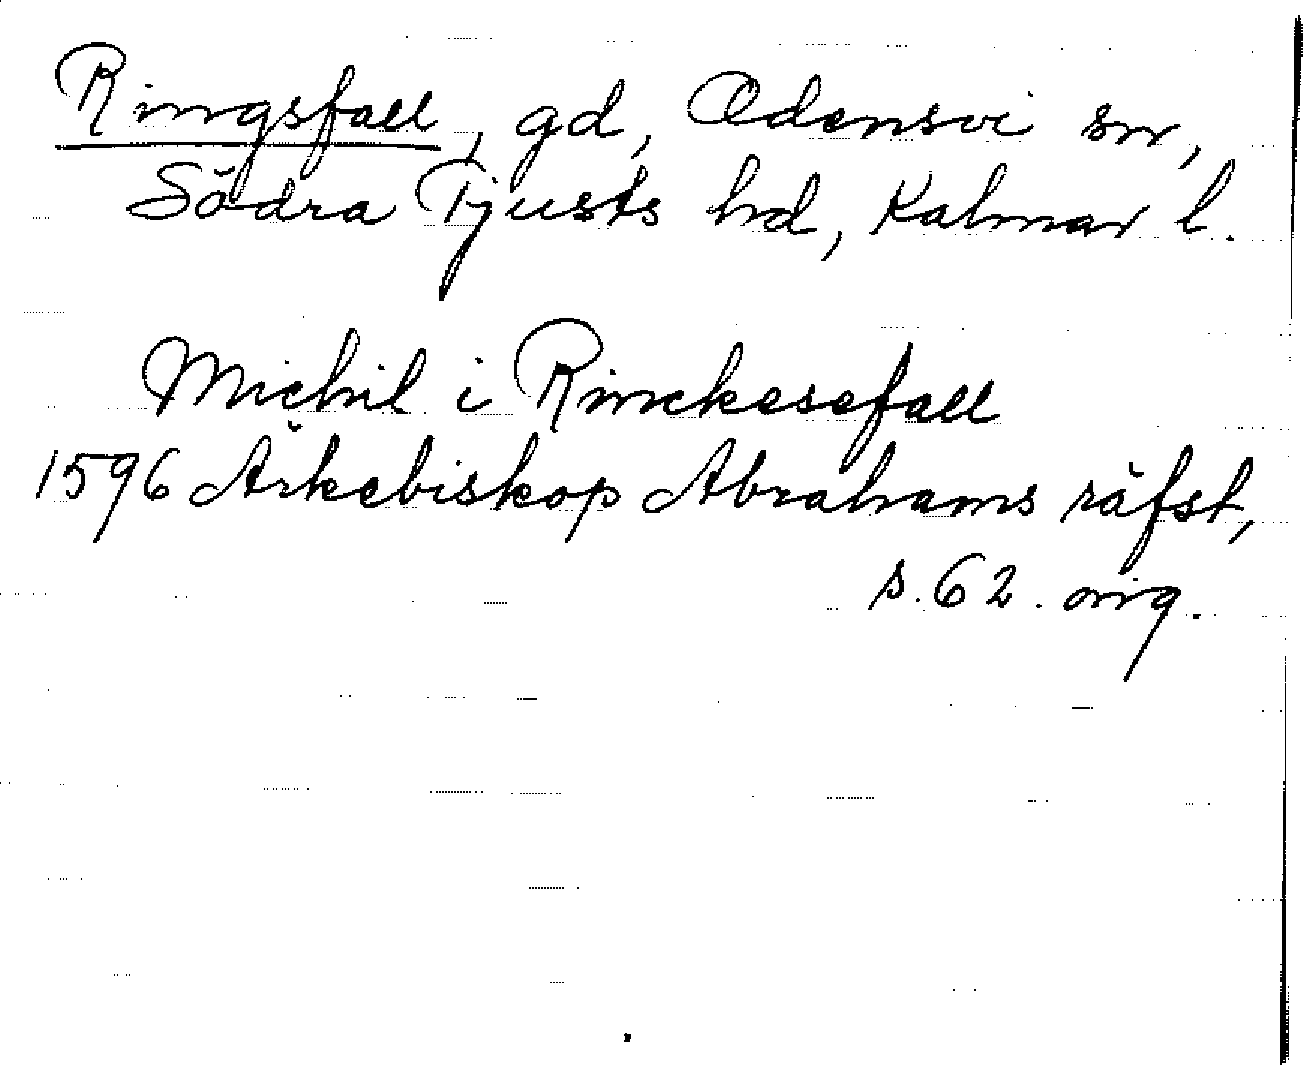 Ringsfall, gd, Odensvi sn,
Södra Tjusts hd, Kalmar l.
Michil i Rinckesefall
1596 Ärkebiskop Abrahams räfst,
s. 62. orig.